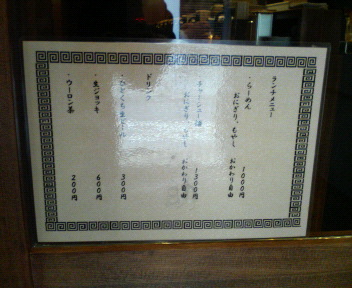 ランチメニュー
・らーめん 1000円
おにぎり、もやし おかわり自由
チャーシュー 1300円
おにぎり、もやし おかわり自由
ドリンク
・ひとくち生ビール 300円
・生ジョッキ 600円
・ウーロン茶 200円